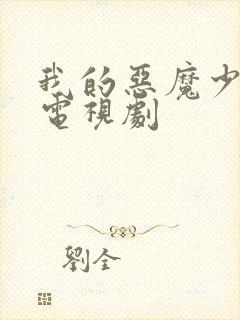 我的惡魔少
電視劇
劉全